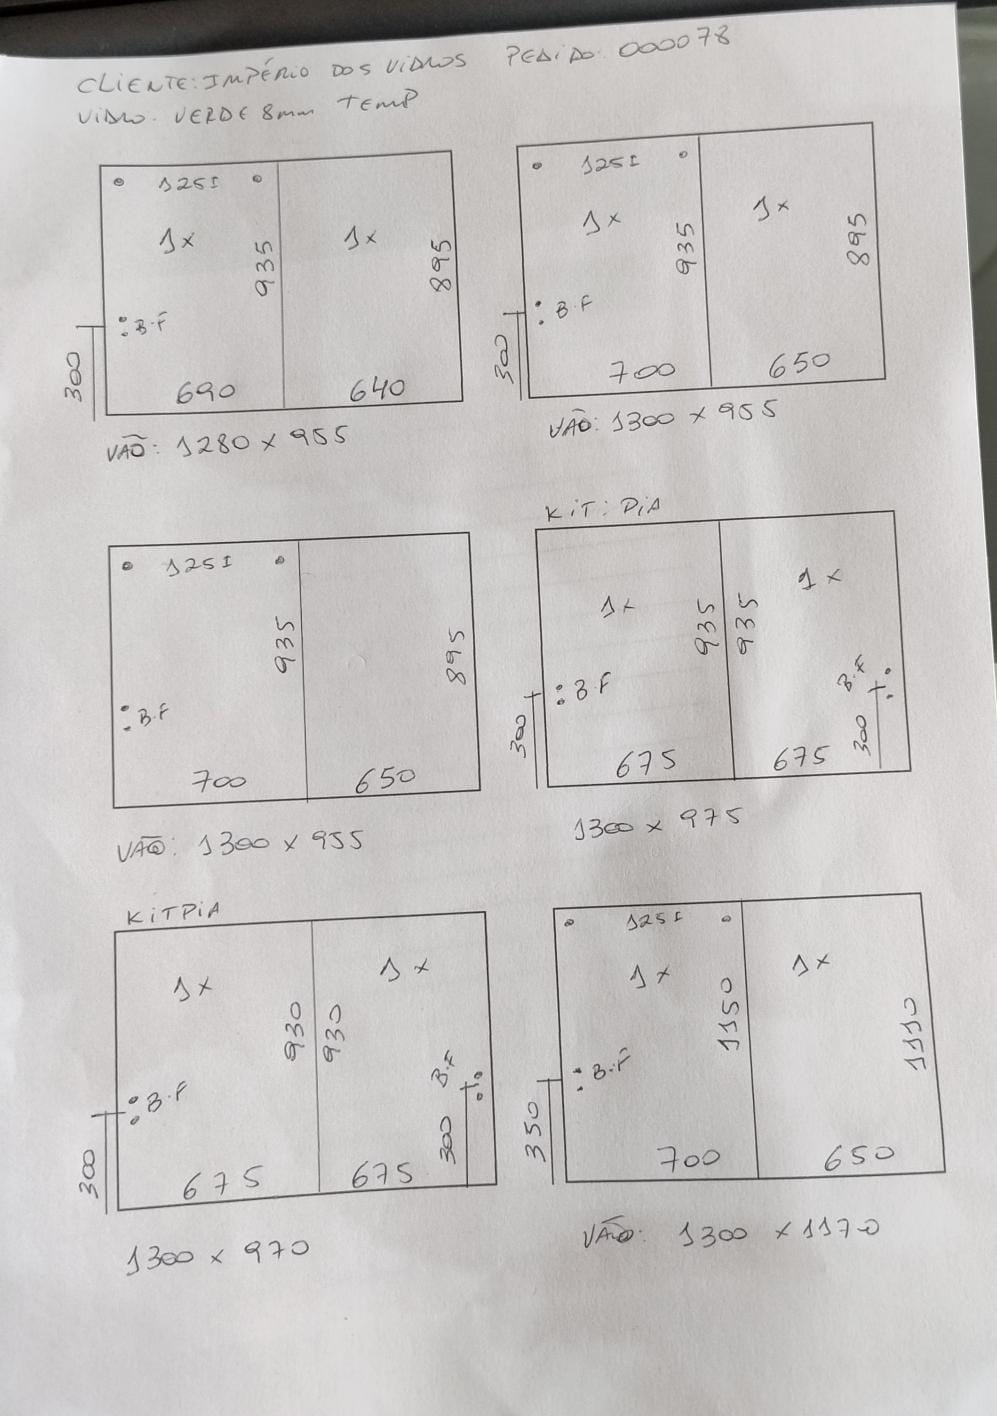 CLIENTE: IMPÉRIO DOS VIDROS PEDIDO: 000078
VIDRO. VERDE 8mm TEMP
125I
1x
1x
935
895
B.F
300
690
640
VÃO: 1280 x 955
125I
1x
1x
935
895
B.F
300
700
650
VÃO: 1300 x 955
125I
935
895
B.F
700
650
VÃO: 1300 x 955
KIT: PIA
1x
1x
935
935
B.F
B.F
300
300
675
675
1300 x 975
KIT PIA
1x
1x
930
930
B.F
B.F
300
300
675
675
1300 x 970
125I
1x
1x
1150
1110
B.F
350
700
650
VÃO: 1300 x 1170